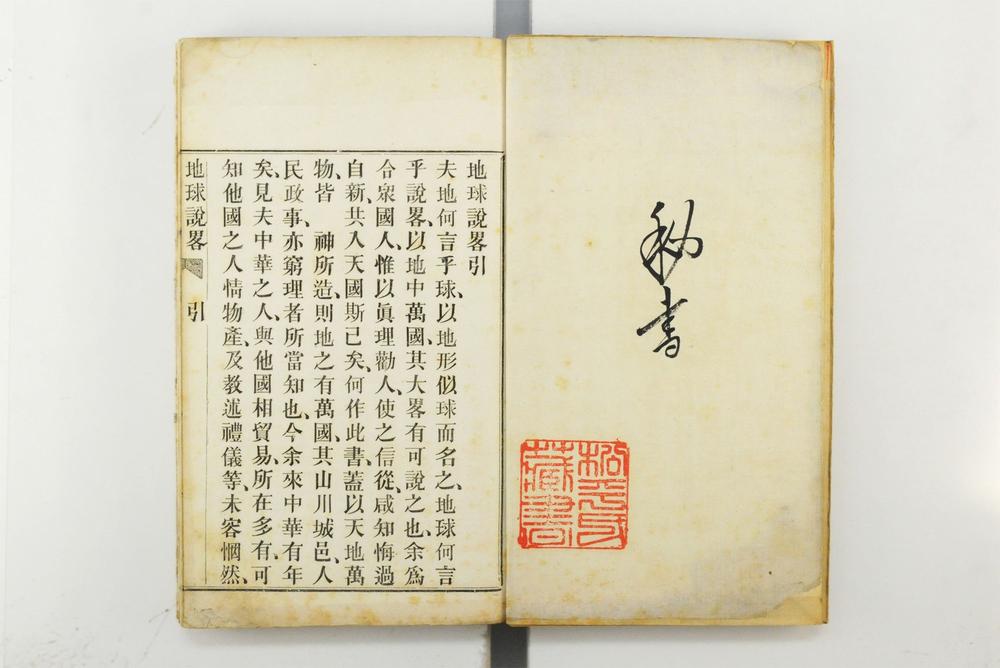 秘書
松平氏
藏書
地球說畧引
夫地何言乎球、以地形似球而名之、地球何言
乎說畧、以地中萬國、其大畧有可說之也、余爲
合衆國人、惟以眞理勸人、使之信從、咸知悔過
自新、共入天國斯已矣、何作此書、蓋以天地萬
物、皆　神所造、則地之有萬國、其山川城邑、人
民政事、亦窮理者所當知也、今余來中華有年
矣、見夫中華之人、與他國相貿易、所在多有、可
知他國之人情物產、及教述禮儀等、未容惘然、
地球說畧　引